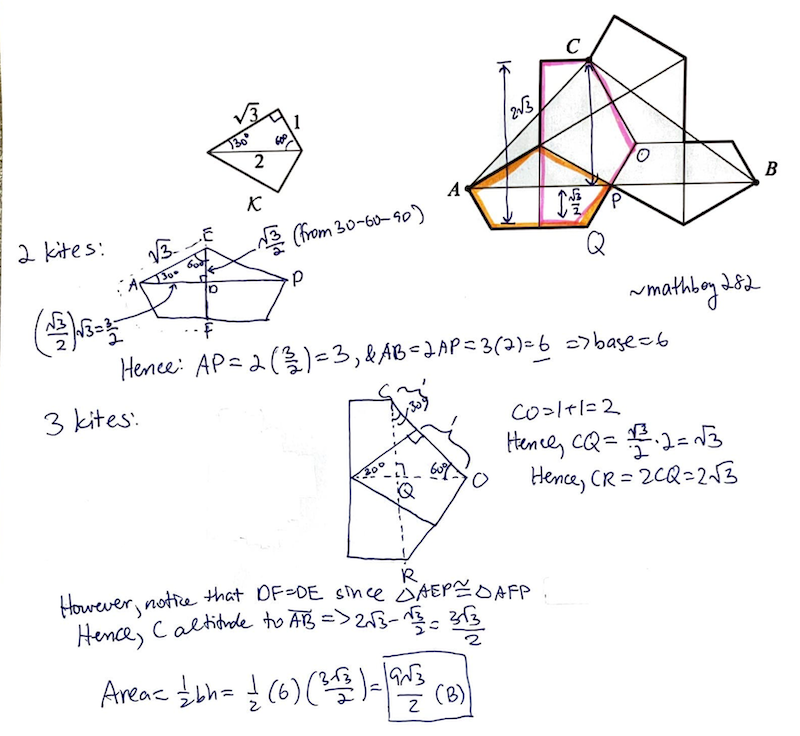 C
√3
1
30°
60°
2
K
2√3
O
A
B
√3/2
P
Q
~mathboy282
2 kites:
√3
E
√3/2 (from 30-60-90)
60°
A
30°
D
P
F
(√3/2)√3=3/2
Hence: AP = 2(3/2)=3, & AB=2AP=3(2)=6 => base=6
3 kites:
C
1
30°
1
30°
60°
Q
O
R
CO=1+1=2
Hence, CQ = √3/2 · 2 = √3
Hence, CR = 2CQ = 2√3
However, notice that DF=DE since △AEP≅△AFP.
Hence, C altitude to AB => 2√3 - √3/2 = 3√3/2
Area = 1/2 bh = 1/2 (6) (3√3/2) = 9√3/2 (B)